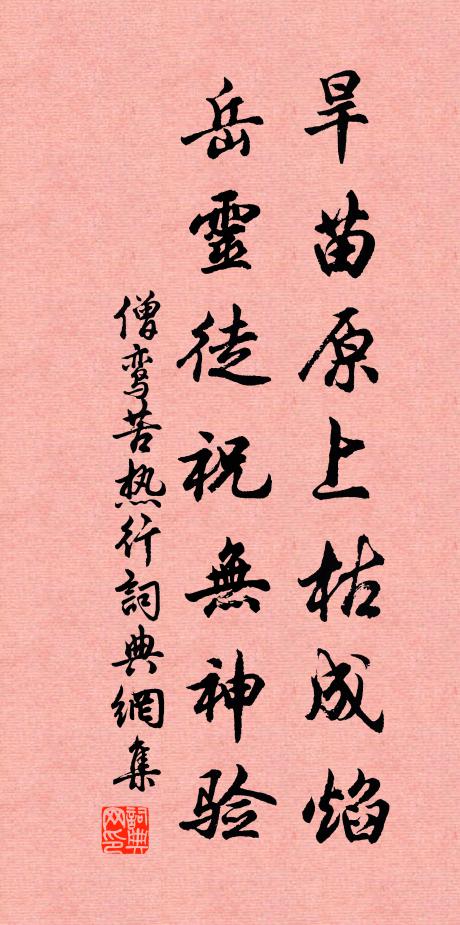 旱苗原上枯成焰
岳靈徒祝無神验
僧鸾苦热行詞典網集
詞典网印